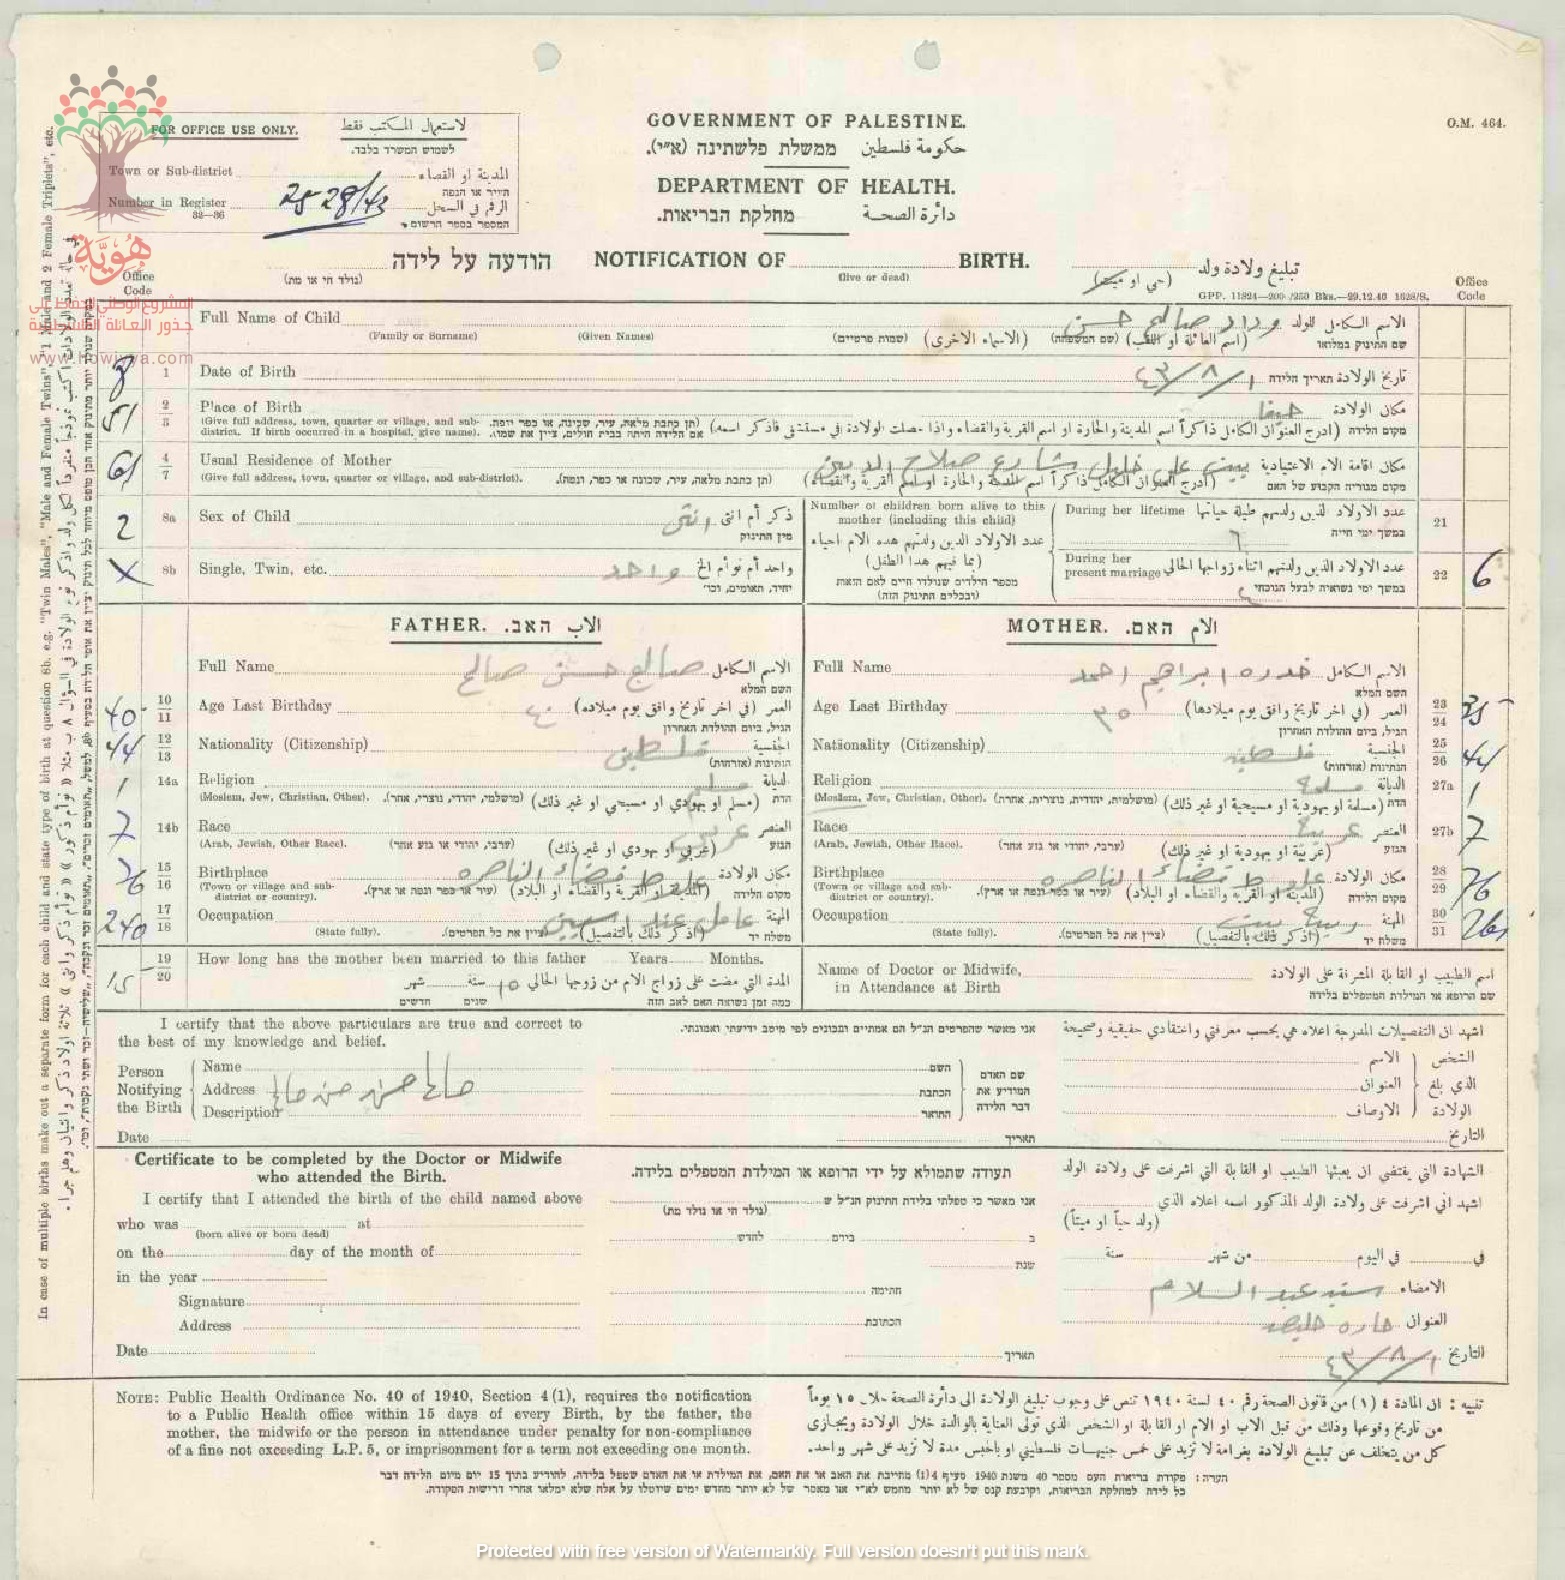 O.M. 464.
FOR OFFICE USE ONLY. لاستعمال المكتب فقط
לשמוש המשרד בלבד.
Town or Sub-district المدينة او القضاء
העיר או הנפה
Number in Register 2828/43 الرقم في السجل
32—36 המספר בספר הרשום
GOVERNMENT OF PALESTINE.
ממשלת פלשתינה (א״י). حكومة فلسطين
DEPARTMENT OF HEALTH.
מחלקת הבריאות. دائرة الصحة
הודעה על לידה NOTIFICATION OF BIRTH. تبليغ ولادة ولد
(נולד חי או מת) (live or dead) (حي او ميت)
GPP. 11824—200 /250 Bks.—29.12.40 1628/S.
Office Code
Office Code
هُوِيَّة
المشروع الوطني للحفاظ على
جذور العائلة الفلسطينية
www.howiyya.com
Full Name of Child وداد صالح حسن الاسم الكامل للولد
שם התינוק במלואו
(Family or Surname) (Given Names) (שמות פרטיים) (الاسماء الاخرى) (שם המשפחה) (اسم العائلة او اللقب)
8 1 Date of Birth ١/٨/٤٣ تاريخ الولادة תאריך הלידה
51 2 3 Place of Birth حيفا مكان الولادة
(Give full address, town, quarter or village, and sub-district. If birth occurred in a hospital, give name). (תן כתבת מלאה, עיר, שכונה, או כפר ונפה. אם הלידה היתה בבית חולים, ציין את שמו). (ادرج العنوان الكامل ذاكراً اسم المدينة والحارة او اسم القرية والقضاء واذا حصلت الولادة في مستشفى فاذكر اسمه) מקום הלידה
61 4 7 Usual Residence of Mother بيت علي خليل شارع صلاح الدين مكان اقامة الام الاعتيادية
(Give full address, town, quarter or village, and sub-district). (תן כתבת מלאה, עיר, שכונה או כפר, ונפה). (ادرج العنوان الكامل ذاكراً اسم المدينة والحارة او اسم القرية والقضاء) מקום מגוריה הקבוע של האם
2 8a Sex of Child انثى ذكر أم انثى
מין התינוק
X 8b Single, Twin, etc. واحد واحد أم توأم الخ
יחיד, תאומים, וכו׳
Number of children born alive to this mother (including this child)
عدد الاولاد الذين ولدتهم هذه الام احياء
(بما فيهم هذا الطفل)
מספר הילדים שנולדו חיים לאם הזאת
(ובכללם התינוק הזה)
During her lifetime عدد الاولاد الذين ولدتهم طيلة حياتها 21
במשך ימי חייה ٦
During her present marriage عدد الاولاد الذين ولدتهم اثناء زواجها الحالي 22 6
במשך ימי נשואיה לבעל הנוכחי
FATHER. האב. الاب
MOTHER. האם. الام
Full Name صالح حسن صالح الاسم الكامل
השם המלא
Full Name خدره ابراهيم احمد الاسم الكامل
השם המלא
40 10 11 Age Last Birthday ٤٠ العمر (في اخر تاريخ وافق يوم ميلاده)
הגיל, ביום ההולדת האחרון
Age Last Birthday ٣٥ العمر (في اخر تاريخ وافق يوم ميلادها) 23 24 35
הגיל, ביום ההולדת האחרון
44 12 13 Nationality (Citizenship) فلسطين الجنسية
הנתינות (אזרחות)
Nationality (Citizenship) فلسطينيه الجنسية 25 26 44
הנתינות (אזרחות)
1 14a Religion مسلم الديانة
(Moslem, Jew, Christian, Other). (מושלמי, יהודי, נוצרי, אחר). (مسلم او يهودي او مسيحي او غير ذلك) הדת
Religion مسلمة الديانة 27a 1
(Moslem, Jew, Christian, Other). (מושלמית, יהודית, נוצרית, אחרת). (مسلمة او يهودية او مسيحية او غير ذلك) הדת
7 14b Race عربي العنصر
(Arab, Jewish, Other Race). (ערבי, יהודי או גזע אחר) (عربي او يهودي او غير ذلك) הגזע
Race عربية العنصر 27b 7
(Arab, Jewish, Other Race). (ערבי, יהודי או גזע אחר) (عربية او يهودية او غير ذلك) הגזע
76 15 16 Birthplace قضاء الناصره مكان الولادة
(Town or village and sub-district or country). (עיר או כפר ונפה או ארץ). (المدينة او القرية والقضاء او البلاد) מקום הלידה
Birthplace قضاء الناصره مكان الولادة 28 29 76
(Town or village and sub-district or country). (עיר או כפר ונפה או ארץ). (المدينة او القرية والقضاء او البلاد) מקום הלידה
240 17 18 Occupation عامل عند المهنة
(State fully). (ציין את כל הפרטים). (اذكر ذلك بالتفصيل) משלח יד
Occupation ربة بيت المهنة 30 31 261
(State fully). (ציין את כל הפרטים). (اذكر ذلك بالتفصيل) משלח יד
15 19 20 How long has the mother been married to this father Years Months.
المدة التي مضت على زواج الام من زوجها الحالي ١٥ سنة شهر
כמה זמן נשואה האם לאב הזה שנים חדשים
Name of Doctor or Midwife, in Attendance at Birth اسم الطبيب او القابلة المشرفة على الولادة
שם הרופא או המילדת המטפלים בלידה
I certify that the above particulars are true and correct to the best of my knowledge and belief.
אני מאשר שהפרטים הנ״ל הם אמתיים ונכונים לפי מיטב ידיעתי ואמונתי.
اشهد ان التفصيلات المدرجة اعلاه هي بحسب معرفتي واعتقادي حقيقية وصحيحة
Person Notifying the Birth Name Address Description
صالح حسن صالح
השם הכתבה התואר שם האדם המודיע את דבר הלידה
الاسم العنوان الاوصاف الشخص الذي بلغ الولادة
Date תאריך التاريخ
Certificate to be completed by the Doctor or Midwife who attended the Birth.
תעודה שתמולא על ידי הרופא או המילדת המטפלים בלידה.
الشهادة التي يقتضي ان يعبئها الطبيب او القابلة التي اشرفت على ولادة الولد
I certify that I attended the birth of the child named above
אני מאשר כי טפלתי בלידת התינוק הנ״ל ש
اشهد اني اشرفت على ولادة الولد المذكور اسمه اعلاه الذي
who was at
(born alive or born dead) (נולד חי או נולד מת) (ولد حياً او ميتاً)
on the day of the month of ב בירח לחדש في في اليوم من شهر سنة
in the year שנת
Signature חתימה الامضاء عبد السلام
Address הכתובת العنوان حاره
Date תאריך التاريخ ١/٨/٤٣
NOTE: Public Health Ordinance No. 40 of 1940, Section 4 (1), requires the notification
to a Public Health office within 15 days of every Birth, by the father, the
mother, the midwife or the person in attendance under penalty for non-compliance
of a fine not exceeding L.P. 5, or imprisonment for a term not exceeding one month.
تنبيه : ان المادة ٤ (١) من قانون الصحة رقم ٤٠ لسنة ١٩٤٠ تنص على وجوب تبليغ الولادة الى دائرة الصحة خلال ١٥ يوماً
من تاريخ وقوعها وذلك من قبل الاب او الام او القابلة او الشخص الذي تولى العناية بالوالدة خلال الولادة ويجازى
كل من يتخلف عن تبليغ الولادة بغرامة لا تزيد على خمس جنيهات فلسطيني او بالحبس مدة لا تزيد على شهر واحد.
הערה : פקודת בריאות העם מספר 40 משנת 1940 סעיף 4(1) מחייבת את האב או את האם, את המילדת או את האדם שטפל בלידה, להודיע בתוך 15 יום מיום הלידה דבר
כל לידה למחלקת הבריאות, וקובעת קנס של לא יותר מחמש לא״י או מאסר של לא יותר מחדש ימים שיוטלו על אלה שלא ימלאו אחרי דרישות הפקודה.
In case of multiple births make out a separate form for each child and state type of birth at question 6b. e.g. "Twin Males", "Male and Female Twins", "1 Male and 2 Female Triplets", etc.
Protected with free version of Watermarkly. Full version doesn't put this mark.